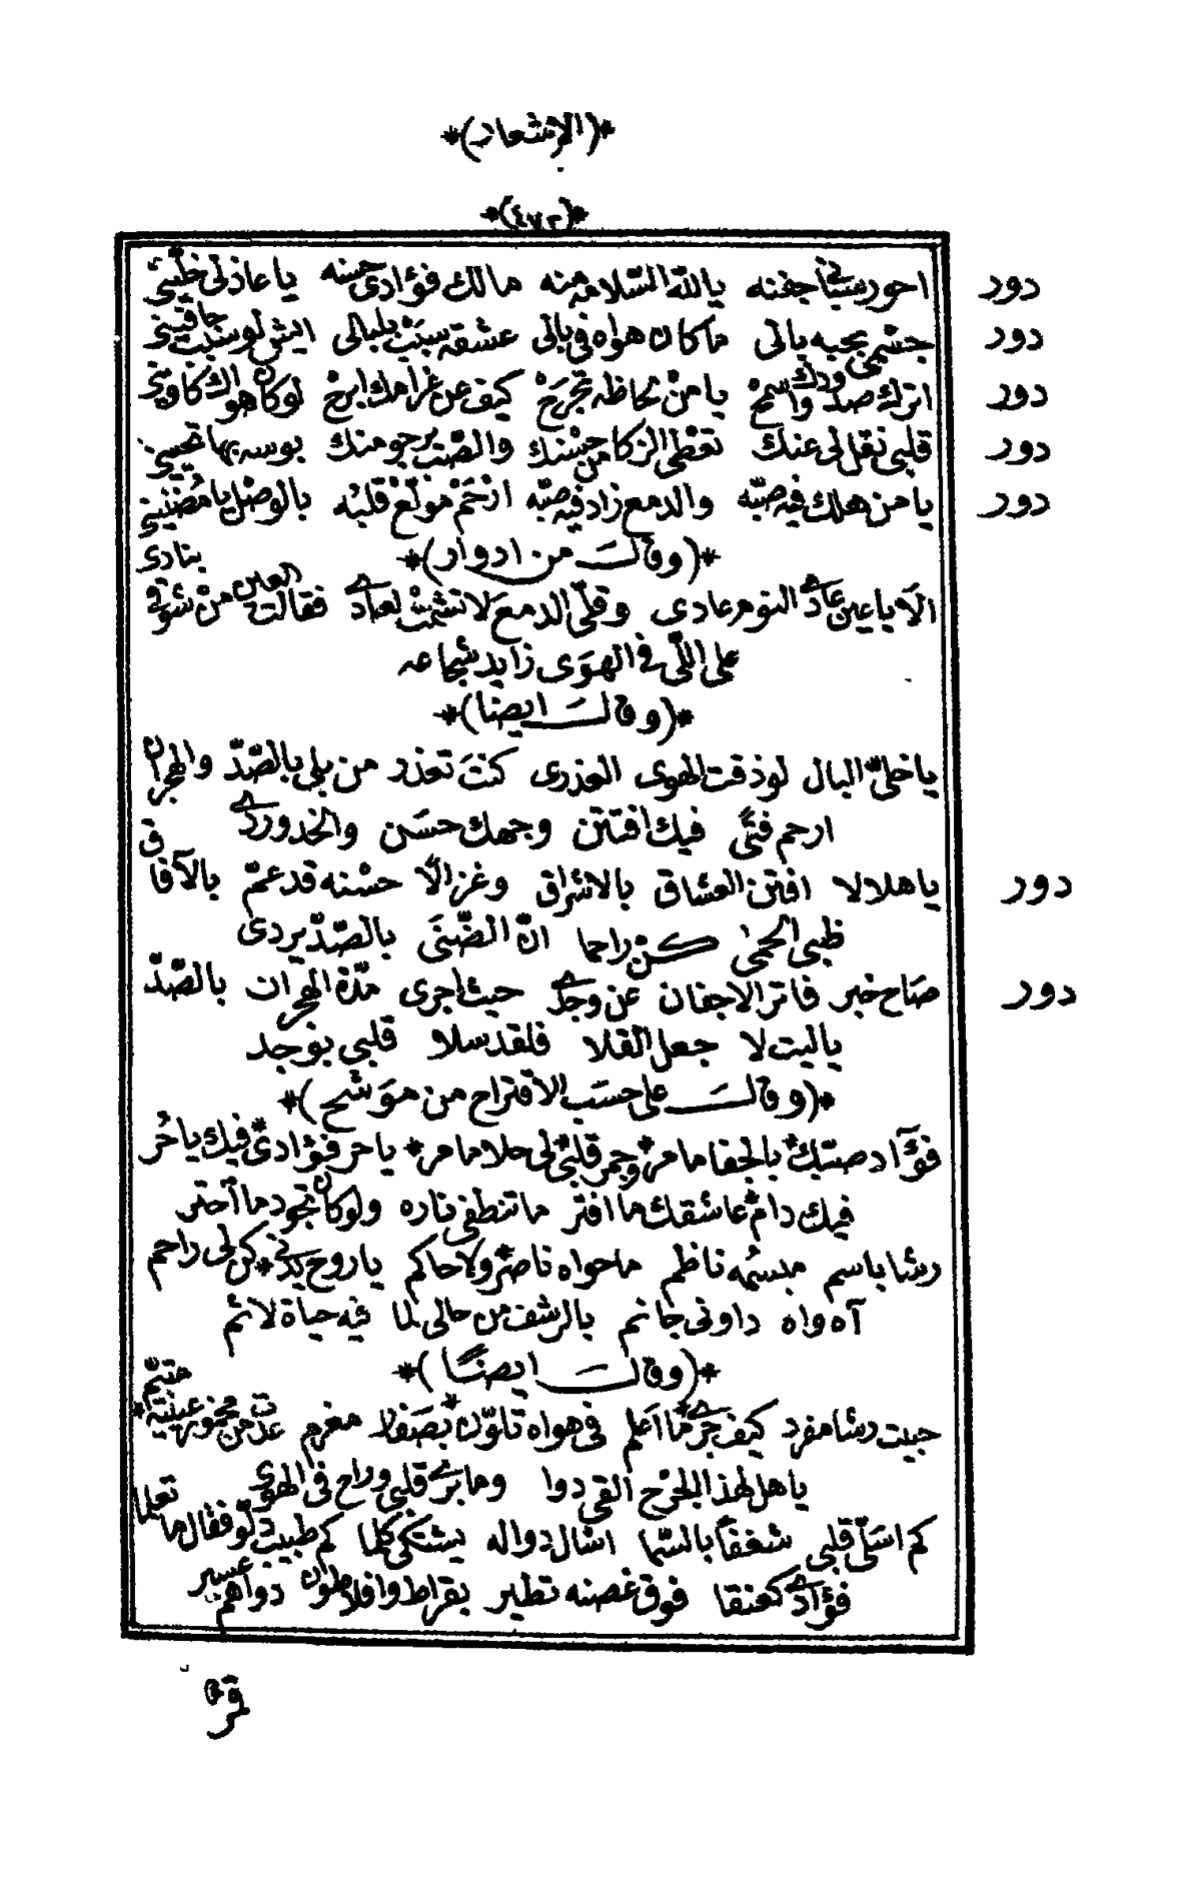 *(الاشعار)*
*(٤٧٢)*
دور احور سباني جفنه يالله السلامه منه مالك فؤادي حسنه يا عاذلى خليني
دور جسمي بحبه بالى ما كان هواه في بالى عشقه سبب بلبالى ايش لو سبب حافيني
دور اترك صدودك واسمح يا من لحاظه تجرح كيف عن غرامك ابرح لو كان هواك كاويني
دور قلبي نقل لى عنك تعطى الزكا من حسنك والصب يرجو منك بوسه بها تحييني
دور يا من هلك فيه صبه والدمع زاد فيه صبه ارحم مولع قلبه بالوصل يا مضنيني
*(وقال من ادوار)*
الا يا عين عادي النوم عادى وقلى الدمع لا تشمت لعادي فقالت العين من شوقي ينادى
على اللى في الهوى زايد شجاعه
*(وقال ايضا)*
يا خلى البال لو ذقت الهوى العذرى كنت تعذر من بلى بالصد والهجران
ارحم فتى فيك افتتن وجهك حسن والخد وردي
دور يا هلالا افتن العشاق بالاشراق وغزالا حسنه قد عم بالآفاق
ظبي الحمى كن راحما ان الضنى بالصد يردى
دور صاح خبر فاتر الاجفان عن وجدي حيث اجرى مدة الهجران بالصد
ياليت لا جعل القلا فلقد سلا قلبي بوجد
*(وقال على حسب الاقتراح من موشح)*
فؤاد صبك بالجفا ما مر* وجمر قلبي لى حلا ما مر* يا حر فؤادى فيك يا حر
فيك دام عاشقك ما افتر ما تنطفي ناره ولو كان تجود ما احتر
رشا باسم مبسمه ناظم ما حواه ناصر ولا حاكم يا روح بدني* كن لى راحم
آه واه داونى جانم بالرشف من حالى لما فيه حياة لائم
*(وقال ايضا)*
حبيت رشا مفرد كيف جري ما اعلم في هواه تلون بصفلا مغرم عدت من مخمور عينيه* متيم
يا هل لهذا الجرح القى دوا وما بري قلبي وراح في الهوى
كم اسلى قلبي شغفا بالسما اسال دواله يشتكي كلما كم طبيب دلو فقال ما تعلما
فؤادي كعنقا فوق غصنه تطير بقراط وافلاطون دواهم عسير
قمر